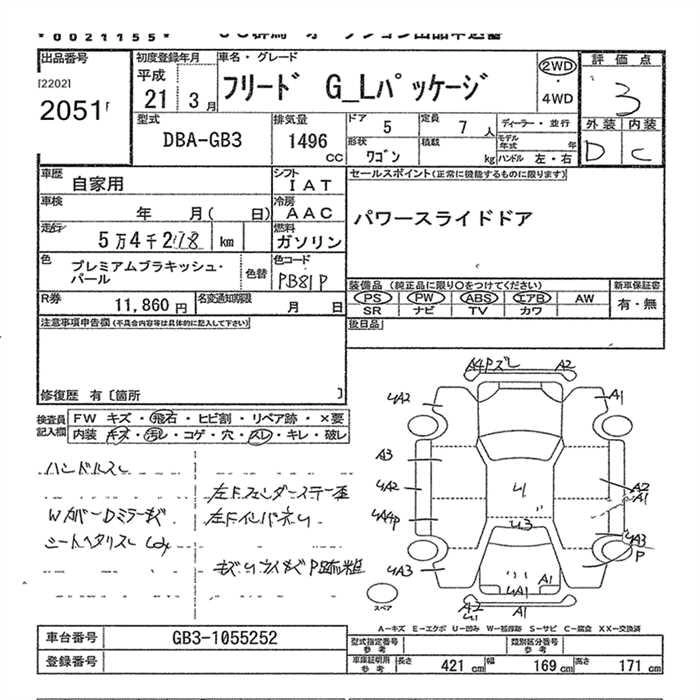 *0021155*
出品番号
[22021
2051
初度登録年月
平成
21 3月
車名・グレード
フリード G_Lパッケージ
2WD
4WD
評価点
3
外装 内装
D C
型式
DBA-GB3
排気量
1496
CC
ドア
5
定員
7人
ディーラー・並行
モデル
年式 年
形状
ワゴン
積載
kg
ハンドル 左・右
車歴
自家用
シフト
IAT
セールスポイント(正常に機能するものに限ります)
パワースライドドア
車検
年 月( 日)
冷房
AAC
走行
5万4千2 km
燃料
ガソリン
色
プレミアムブラキッシュ・
パール
色替
色コード
PB81P
装備品(純正品に限り○をつけてください)
新車保証書
PS PW ABS エアB AW
有・無
SR ナビ TV カワ
R券
11,860円
名変通知期限
月 日
後日品
注意事項申告欄(不具合内容等は具体的に記入して下さい)
修復歴 有〔箇所 〕
検査員
記入欄
FW キズ・飛石・ヒビ割・リペア跡・×要
内装 キズ・汚レ・コゲ・穴・スレ・キレ・破レ
ハンドルスレ
左Fフェンダーステー歪
WカバーDミラーキズ
左Fインパネ
シートヘタリスレ
A4Pズレ A2
4A2 A1
A3
4A2
A2
A1
4A4P
4A3
P
4A3
U1
U3
A1
4A1
A2
A1
スペア
A−キズ E−エクボ U−凹み W−補修跡 S−サビ C−腐食 XX−交換済
車台番号
GB3-1055252
登録番号
型式指定番号
参考
類別区分番号
参考
車庫証明用
参考
長さ 421 cm 幅 169 cm 高さ 171 cm